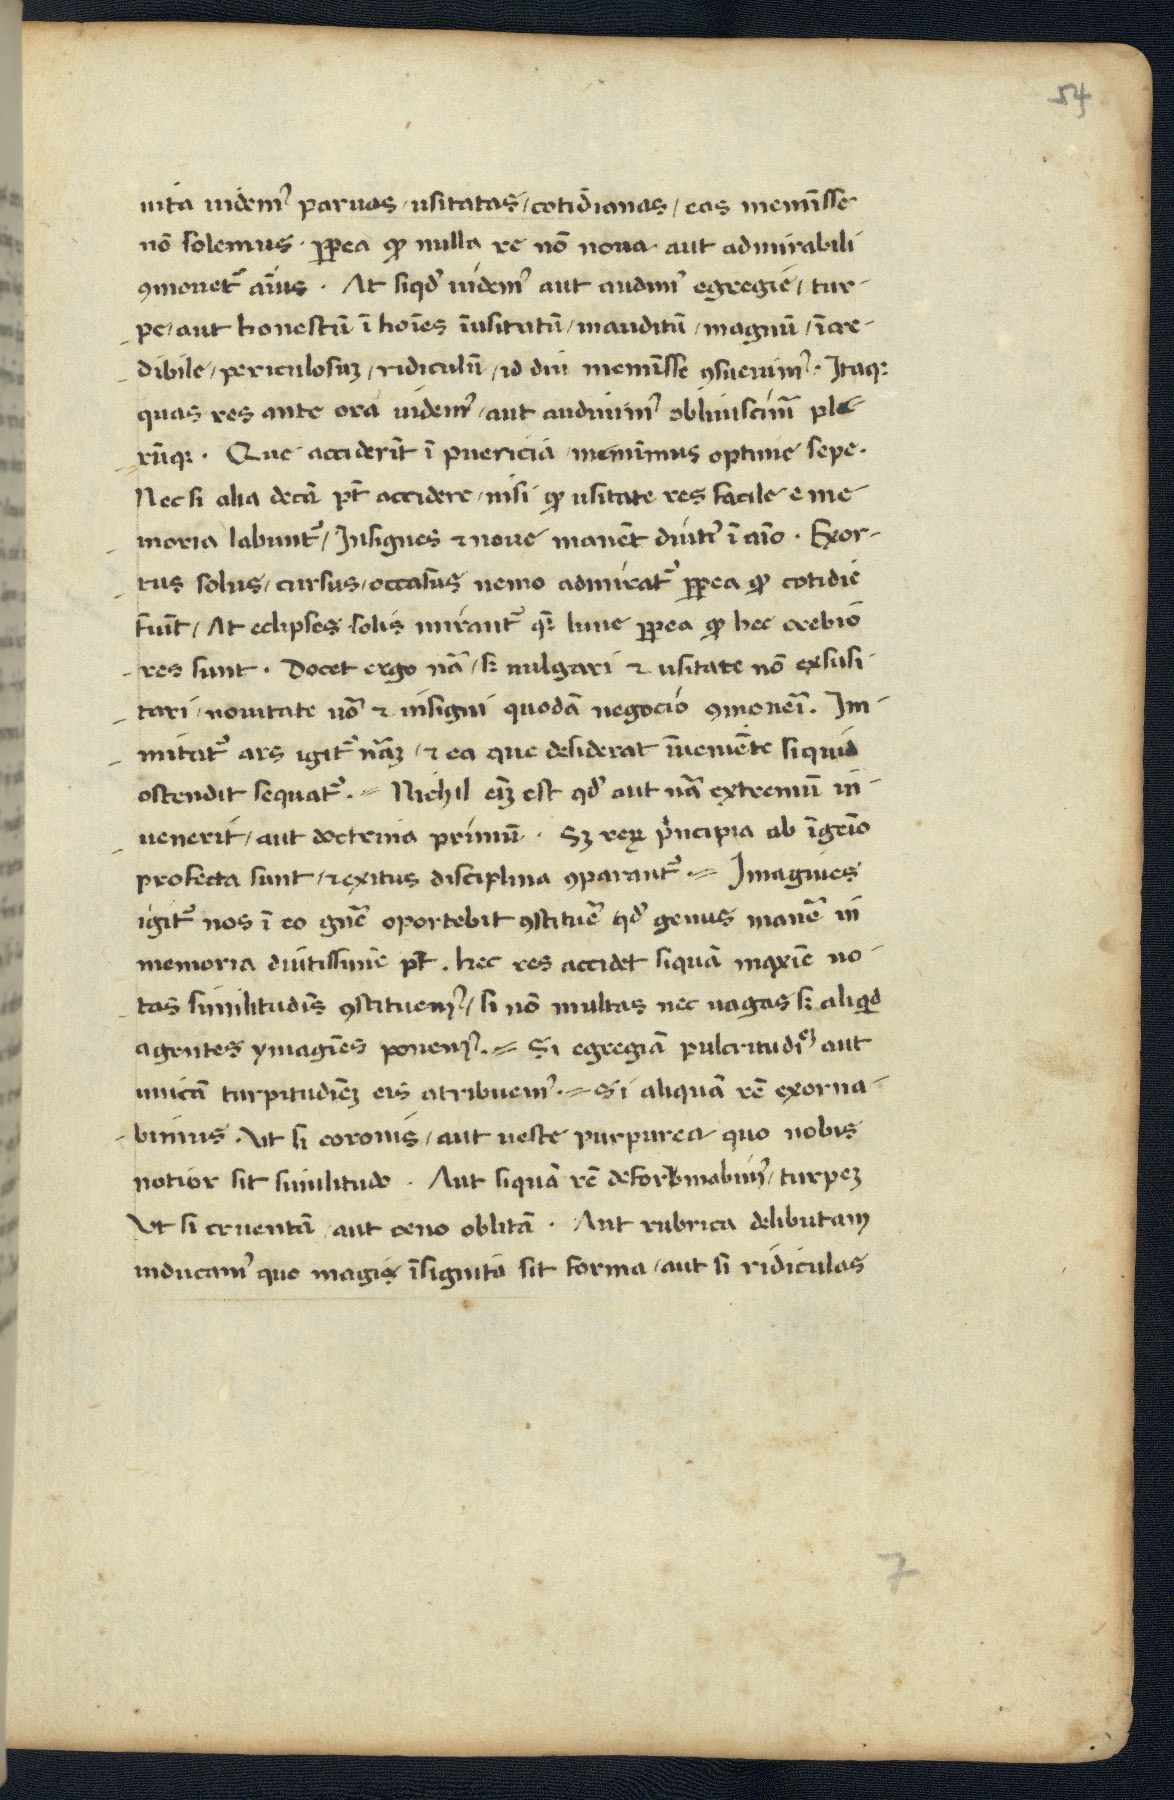 54
uita uidemꝰ paruas / usitatas / cotidianas / eas meminisse
nō solemus · ꝓpea qͦ nulla re nō noua · aut admirabili
ꝯmouetᷣ aīus · At siqd̕ uidemꝰ aut audimꝰ egregie / tur-
pe / aut honestū ī hoīes īusitatū / inauditū / magnū / īcre-
dibile / periculosuꝫ / ridiculū / id diu meminisse ꝯsueuimꝰ · Itaqꝫ
quas res ante ora uidemꝰ / aut audiuimꝰ obliuiscimᷣ ple-
rūqꝫ · Que acciderīt ī puericia / meminimus optime sepe ·
Nec si alia decā pt̄ accidere / nisi qͦ usitate res facile e me
moria labuntᷣ / Insignes ⁊ noue manēt diutiꝰ ī aīo · Exor-
tus solus / cursus / occasus nemo admiratᷣ ꝓpea qͦ cotidie
fiūt / At eclipses solis mirantᷣ qꝫ lune ꝓpea qͦ hec crebio
res sunt · Docet ergo nā / sꝫ uulgari ⁊ usitate nō exsusi
tari / nouitate uō ⁊ insigni quodā negocio ꝯmoueri . Im-
mitatᷣ ars igitᷣ nāꝫ / ⁊ ea que desiderat īueniēte siquid
ostendit sequatᷣ . = Nichil eīꝫ est qd̕ aut nā extremū in-
uenerit / aut doctrina primū · Sꝫ reꝝ pͥncipia ab īgeīo
profecta sunt / ⁊ exitus disciplina ꝯparantᷣ . = Imagines
igitᷣ nos ī eo gn̄e oportebit ꝯstituē qd̕ genus manē in
memoria diutissime pt̄ . hec res accidet siquā maxīe no-
tas similitudīs ꝯstituemꝰ / si nō multas nec uagas sꝫ aliqd
agentes ymagīes ponemꝰ . = Si egregiā pulcritudīeꝫ aut
unicā turpitudīeꝫ eis atribuemꝰ . = Si aliquā rē exorna-
bimus · Vt si coronis / aut ueste purpurea quo nobis
notior sit similitudo · Aut siquā rē deformabimꝰ / turpeꝫ
Vt si cruentā aut ceno oblitā · Aut rubrica delibutam
inducamꝰ quo magis īsignita sit forma / aut si ridiculas
7